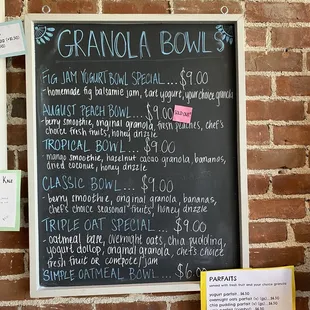 GRANOLA BOWLS
FIG JAM YOGURT BOWL SPECIAL ... $9.00
- homemade fig balsamic jam, tart yogurt, your choice granola
AUGUST PEACH BOWL ... $9.00 SOLD OUT
- berry smoothie, original granola, fresh peaches, chef's
choice fresh fruits, honey drizzle
TROPICAL BOWL ... $9.00
- mango smoothie, hazelnut cacao granola, bananas,
dried coconut, honey drizzle
CLASSIC BOWL ... $9.00
- berry smoothie, original granola, bananas,
chef's choice seasonal fruits, honey drizzle
TRIPLE OAT SPECIAL ... $9.00
- oatmeal base, overnight oats, chia pudding,
yogurt dollop, original granola, chef's choice
fresh fruit or compote/jam
SIMPLE OATMEAL BOWL ... $6.00
PARFAITS
served with fresh fruit and your choice granola
yogurt parfait
overnight oats parfait (v) (gf)
chia pudding parfait (v) (gf)